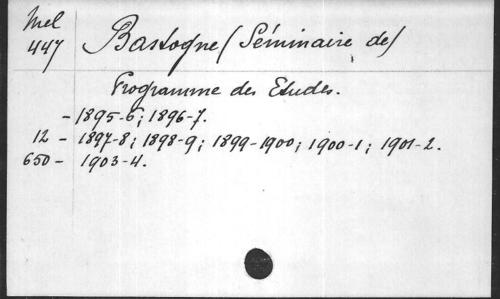 Mel
447
Bastogne (Séminaire de)
Programme des Etudes.
- 1895-6; 1896-7.
12 - 1897-8; 1898-9; 1899-1900; 1900-1; 1901-2.
650 - 1903-4.